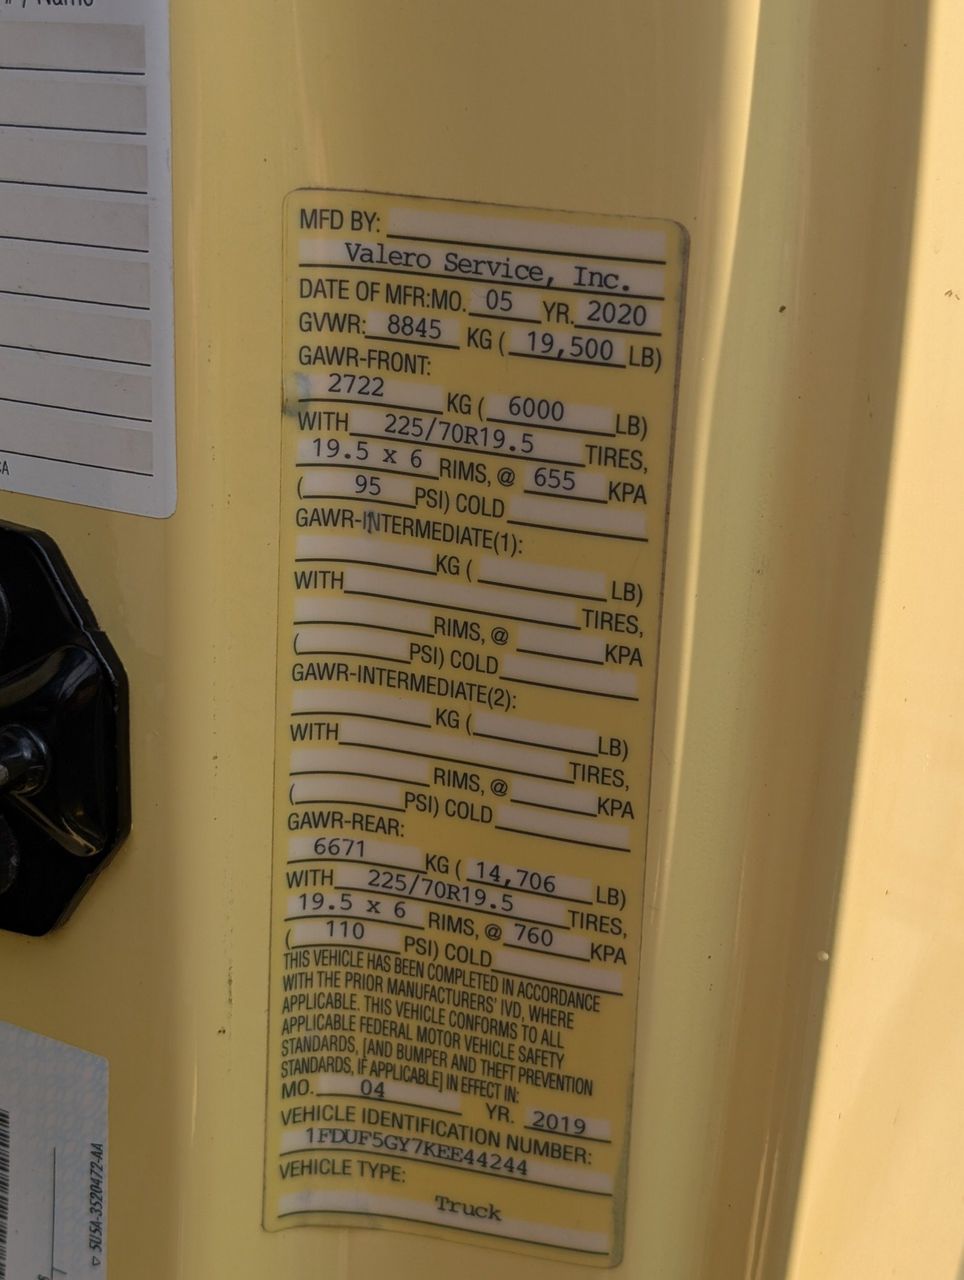 # / Name
CA
MFD BY:
Valero Service, Inc.
DATE OF MFR:MO. 05 YR. 2020
GVWR: 8845 KG ( 19,500 LB)
GAWR-FRONT:
2722 KG ( 6000 LB)
WITH 225/70R19.5 TIRES,
19.5 x 6 RIMS, @ 655 KPA
( 95 PSI) COLD
GAWR-INTERMEDIATE(1):
KG ( LB)
WITH TIRES,
RIMS, @ KPA
( PSI) COLD
GAWR-INTERMEDIATE(2):
KG ( LB)
WITH TIRES,
RIMS, @ KPA
( PSI) COLD
GAWR-REAR:
6671 KG ( 14,706 LB)
WITH 225/70R19.5 TIRES,
19.5 x 6 RIMS, @ 760 KPA
( 110 PSI) COLD
THIS VEHICLE HAS BEEN COMPLETED IN ACCORDANCE
WITH THE PRIOR MANUFACTURERS' IVD, WHERE
APPLICABLE. THIS VEHICLE CONFORMS TO ALL
APPLICABLE FEDERAL MOTOR VEHICLE SAFETY
STANDARDS, [AND BUMPER AND THEFT PREVENTION
STANDARDS, IF APPLICABLE] IN EFFECT IN:
MO. 04 YR. 2019
VEHICLE IDENTIFICATION NUMBER:
1FDUF5GY7KEE44244
VEHICLE TYPE:
Truck
5U5A-3520472-AA